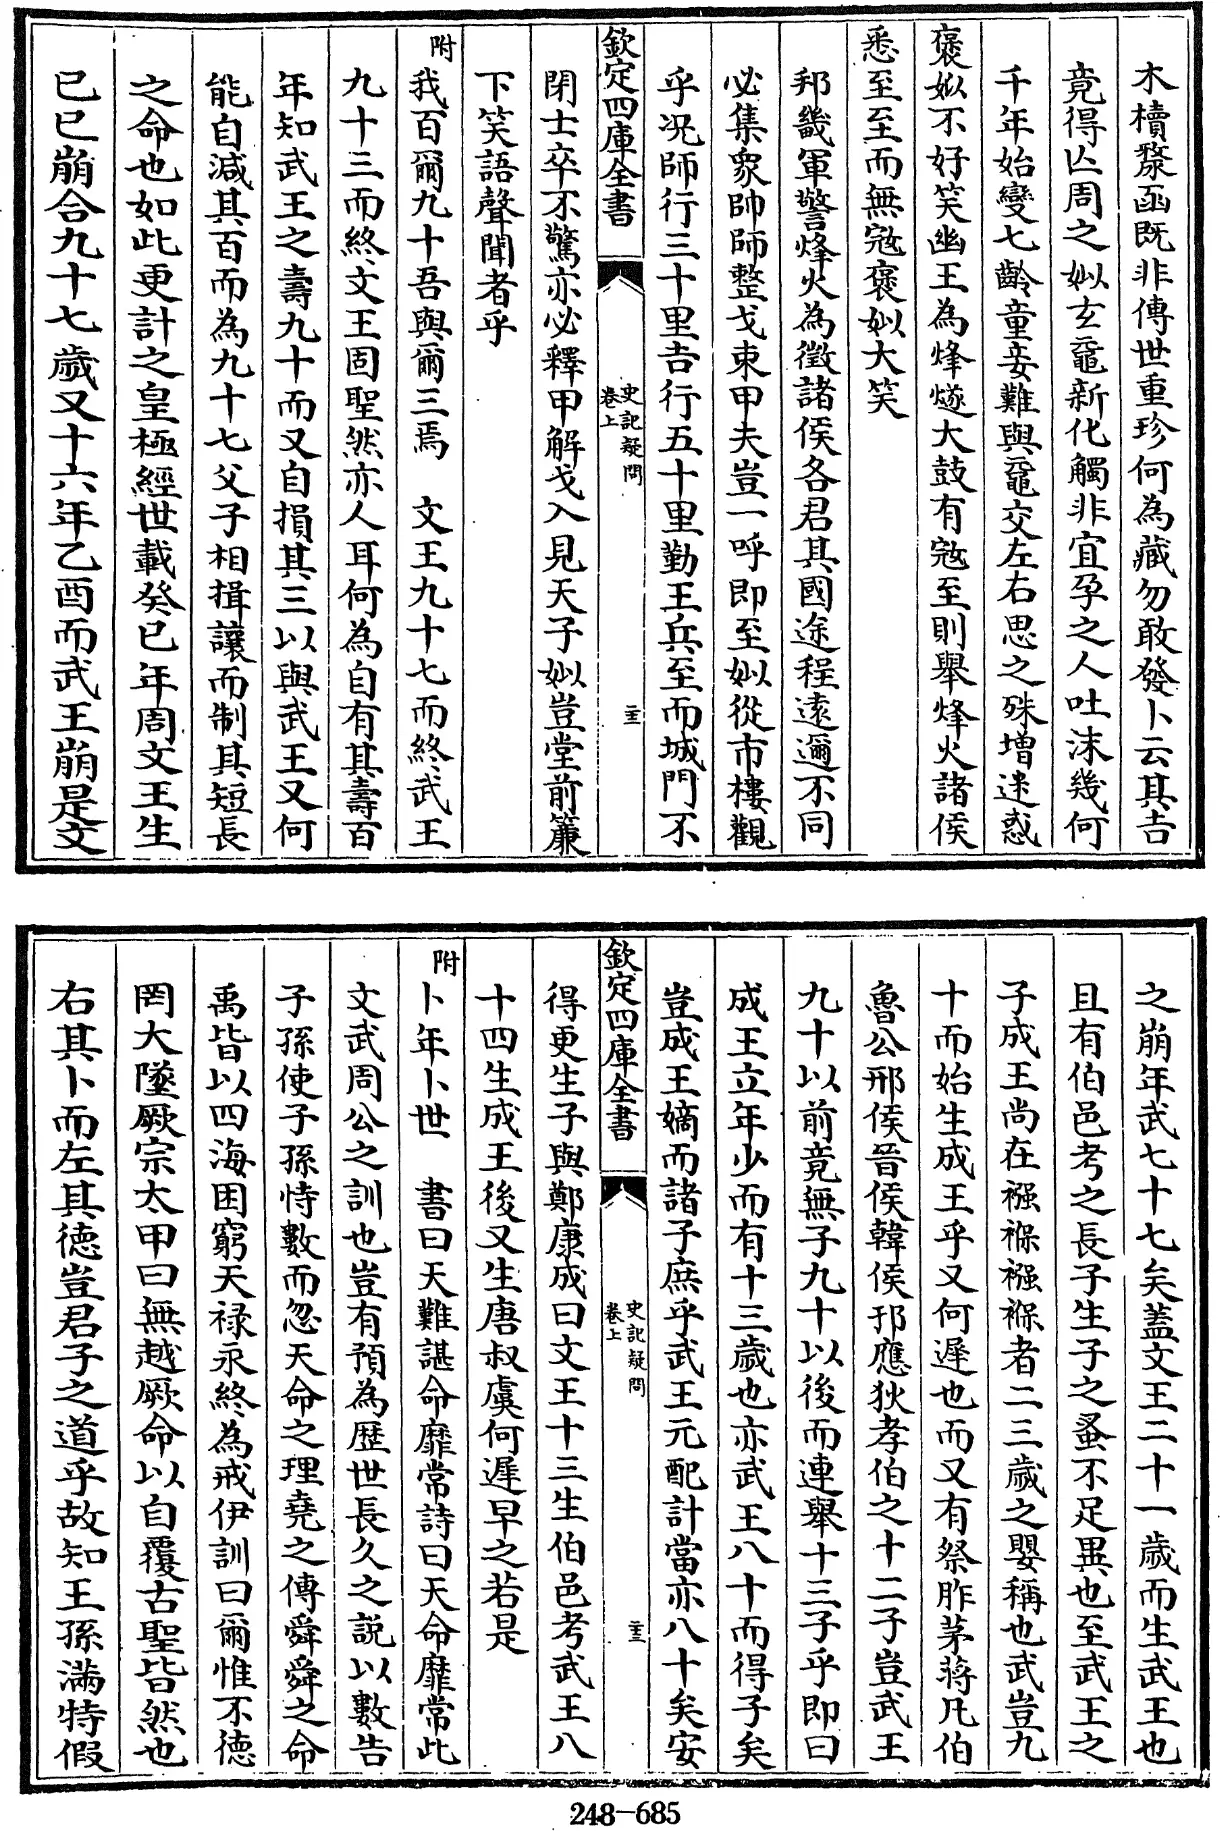 木櫝漦函既非傳世重珍何為藏勿敢發卜云其吉
竟得亾周之姒玄黿新化觸非宜孕之人吐沫幾何
千年始變七齡童妾難與黿交左右思之殊增迷惑
褒姒不好笑幽王為烽燧大鼓有宼至則舉烽火諸侯
悉至至而無宼褒姒大笑
邦畿軍警烽火為徵諸侯各君其國途程逺邇不同
必集衆帥師整戈束甲夫豈一呼即至姒從市樓觀
乎况師行三十里吉行五十里勤王兵至而城門不
欽定四庫全書
史記疑問
卷上
閉士卒不驚亦必釋甲解戈入見天子姒豈堂前簾
下笑語聲聞者乎
附我百爾九十吾與爾三焉 文王九十七而終武王
九十三而終文王固聖然亦人耳何為自有其壽百
年知武王之壽九十而又自損其三以與武王又何
能自減其百而為九十七父子相揖讓而制其短長
之命也如此更計之皇極經世載癸巳年周文王生
已巳崩合九十七歲又十六年乙酉而武王崩是文
之崩年武七十七矣蓋文王二十一歲而生武王也
且有伯邑考之長子生子之蚤不足異也至武王之
子成王尚在襁褓襁褓者二三歲之嬰稱也武豈九
十而始生成王乎又何遲也而又有祭胙茅蔣凡伯
魯公邢侯晉侯韓侯邘應狄孝伯之十二子豈武王
九十以前竟無子九十以後而連舉十三子乎即曰
成王立年少而有十三歲也亦武王八十而得子矣
豈成王嫡而諸子庶乎武王元配計當亦八十矣安
欽定四庫全書
史記疑問
卷上
得更生子與鄭康成曰文王十三生伯邑考武王八
十四生成王後又生唐叔虞何遲早之若是
附卜年卜世 書曰天難諶命靡常詩曰天命靡常此
文武周公之訓也豈有預為歴世長久之説以數告
子孫使子孫恃數而忽天命之理堯之傳舜舜之命
禹皆以四海困窮天禄永終為戒伊訓曰爾惟不德
罔大墜厥宗太甲曰無越厥命以自覆古聖皆然也
右其卜而左其徳豈君子之道乎故知王孫滿特假
248-685